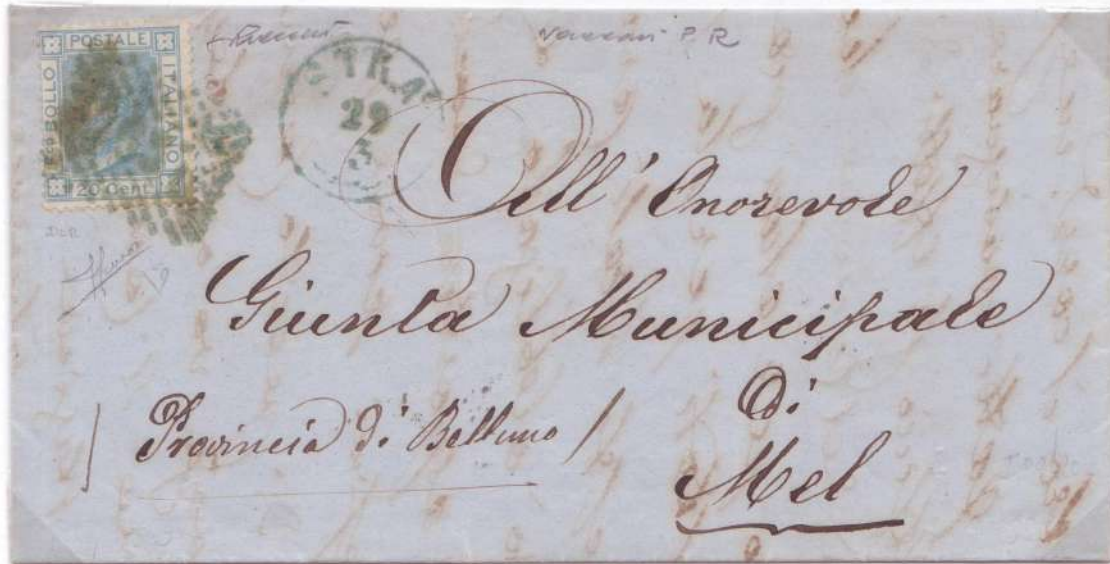 POSTALE
Fco BOLLO
ITALIANO
20 Cent.
Vaccari P. R
STRA
29
5
All' Onorevole
Giunta Municipale
di
Mel
/ Provincia di Belluno /